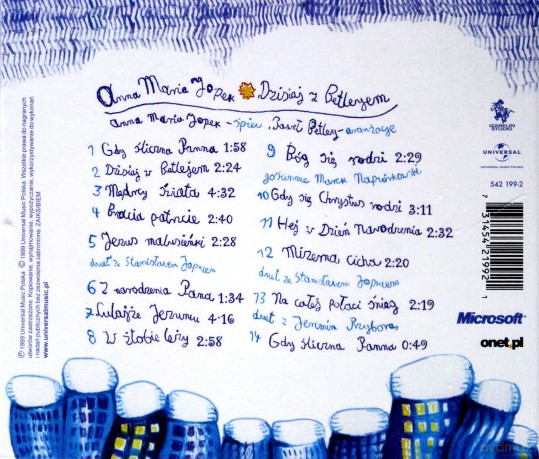 Anna Maria Jopek Dzisiaj z Betleyem
Anna Maria Jopek - śpiew, Paweł Betley - aranżacje
1 Gdy śliczna Panna 1:58
2 Dzisiaj w Betlejem 2:24
3 Mędrcy Świata 4:32
4 Bracia patrzcie 2:40
5 Jezus malusieńki 2:28
duet ze Stanisławem Jopkiem
6 Z narodzenia Pana 1:34
7 Lulajże Jezuniu 4:16
8 W żłobie leży 2:58
9 Bóg się rodzi 2:29
gościnnie Marek Napiórkowski
10 Gdy się Chrystus rodzi 3:11
11 Hej w Dzień Narodzenia 2:32
12 Mizerna cicha 2:20
duet ze Stanisławem Jopkiem
13 Na całej połaci śnieg 2:19
duet z Jeremim Przyborą
14 Gdy śliczna Panna 0:49
IZABELIN STUDIO
UNIVERSAL
UNIVERSAL MUSIC POLSKA
542 199-2
7 31454 21992 1
Microsoft
onet.pl
℗ 1999 Universal Music Polska © 1999 Universal Music Polska. Wszelkie prawa do nagranych
utworów zastrzeżone. Kopiowanie, wynajmowanie, wypożyczanie, wykorzystywanie do wykonań
i nadań publicznych bez zezwolenia zabronione. ZAIKS/BIEM
www.universalmusic.pl